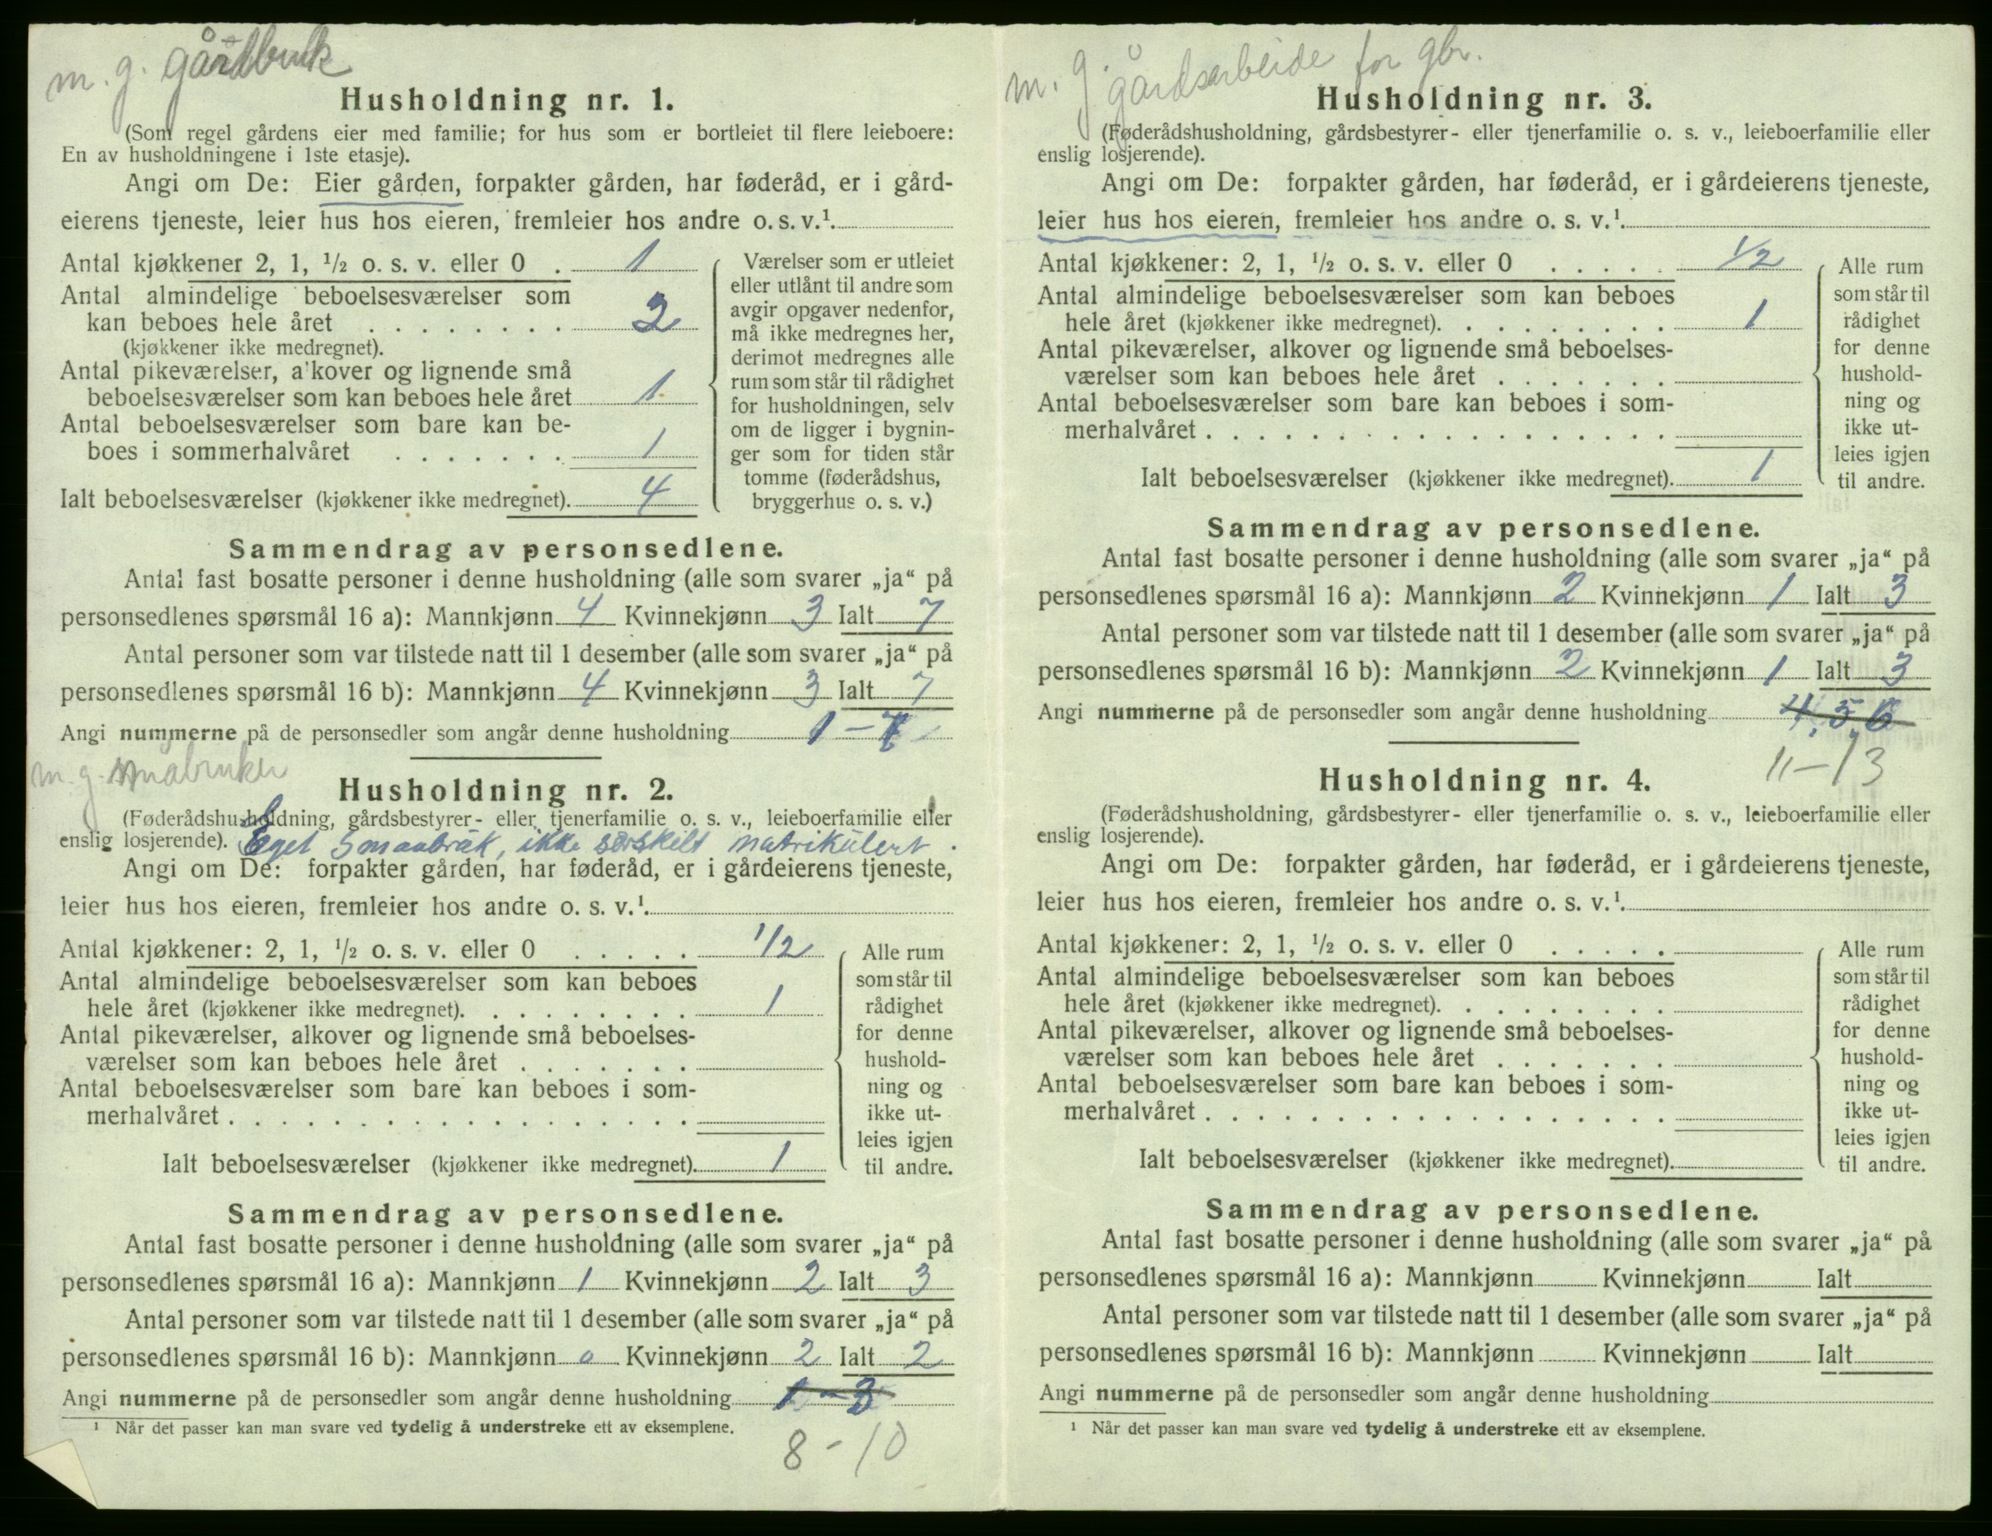 m. g. gårdbruk
Husholdning nr. 1.
(Som regel gårdens eier med familie; for hus som er bortleiet til flere leieboere:
En av husholdningene i 1ste etasje).
Angi om De: Eier gården, forpakter gården, har føderåd, er i gård-
eierens tjeneste, leier hus hos eieren, fremleier hos andre o. s. v.¹
Antal kjøkkener 2, 1, ½ o. s. v. eller 0 . 1
Antal almindelige beboelsesværelser som
kan beboes hele året . . . . . . . . 2
(kjøkkener ikke medregnet).
Antal pikeværelser, a'kover og lignende små
beboelsesværelser som kan beboes hele året 1
Antal beboelsesværelser som bare kan be-
boes i sommerhalvåret . . . . . . . 1
Ialt beboelsesværelser (kjøkkener ikke medregnet). 4
Værelser som er utleiet
eller utlånt til andre som
avgir opgaver nedenfor,
må ikke medregnes her,
derimot medregnes alle
rum som står til rådighet
for husholdningen, selv
om de ligger i bygnin-
ger som for tiden står
tomme (føderådshus,
bryggerhus o. s. v.)
Sammendrag av personsedlene.
Antal fast bosatte personer i denne husholdning (alle som svarer „ja“ på
personsedlenes spørsmål 16 a): Mannkjønn 4 Kvinnekjønn 3 Ialt 7
Antal personer som var tilstede natt til 1 desember (alle som svarer „ja“ på
personsedlenes spørsmål 16 b): Mannkjønn 4 Kvinnekjønn 3 Ialt 7
Angi nummerne på de personsedler som angår denne husholdning 1 - 7
m. g. småbruker
Husholdning nr. 2.
(Føderådshusholdning, gårdsbestyrer- eller tjenerfamilie o. s. v., leieboerfamilie eller
enslig losjerende). Eget Smaabruk, ikke særskilt matrikulert.
Angi om De: forpakter gården, har føderåd, er i gårdeierens tjeneste,
leier hus hos eieren, fremleier hos andre o. s. v.¹
Antal kjøkkener: 2, 1, ½ o. s. v. eller 0 . . . . . 1/2
Antal almindelige beboelsesværelser som kan beboes
hele året (kjøkkener ikke medregnet). . . . . . . . . 1
Antal pikeværelser, alkover og lignende små beboelses-
værelser som kan beboes hele året . . . . . . .
Antal beboelsesværelser som bare kan beboes i som-
merhalvåret . . . . . . . . . . . . . . . . . .
Ialt beboelsesværelser (kjøkkener ikke medregnet). 1
Alle rum
som står til
rådighet
for denne
hushold-
ning og
ikke ut-
leies igjen
til andre.
Sammendrag av personsedlene.
Antal fast bosatte personer i denne husholdning (alle som svarer „ja“ på
personsedlenes spørsmål 16 a): Mannkjønn 1 Kvinnekjønn 2 Ialt 3
Antal personer som var tilstede natt til 1 desember (alle som svarer „ja“ på
personsedlenes spørsmål 16 b): Mannkjønn 0 Kvinnekjønn 2 Ialt 2
Angi nummerne på de personsedler som angår denne husholdning 1 - 3
¹ Når det passer kan man svare ved tydelig å understreke ett av eksemplene.
8 - 10
m. g. gårdsarbeide for gbr.
Husholdning nr. 3.
(Føderådshusholdning, gårdsbestyrer- eller tjenerfamilie o. s. v., leieboerfamilie eller
enslig losjerende).
Angi om De: forpakter gården, har føderåd, er i gårdeierens tjeneste,
leier hus hos eieren, fremleier hos andre o. s. v.¹
Antal kjøkkener: 2, 1, ½ o. s. v. eller 0 . . . . . 1/2
Antal almindelige beboelsesværelser som kan beboes
hele året (kjøkkener ikke medregnet). . . . . . . . . 1
Antal pikeværelser, alkover og lignende små beboelses-
værelser som kan beboes hele året . . . . . . .
Antal beboelsesværelser som bare kan beboes i som-
merhalvåret . . . . . . . . . . . . . . . . . .
Ialt beboelsesværelser (kjøkkener ikke medregnet). 1
Alle rum
som står til
rådighet
for denne
hushold-
ning og
ikke ut-
leies igjen
til andre.
Sammendrag av personsedlene.
Antal fast bosatte personer i denne husholdning (alle som svarer „ja“ på
personsedlenes spørsmål 16 a): Mannkjønn 2 Kvinnekjønn 1 Ialt 3
Antal personer som var tilstede natt til 1 desember (alle som svarer „ja“ på
personsedlenes spørsmål 16 b): Mannkjønn 2 Kvinnekjønn 1 Ialt 3
Angi nummerne på de personsedler som angår denne husholdning 4, 5, 6
11 - 13
Husholdning nr. 4.
(Føderådshusholdning, gårdsbestyrer- eller tjenerfamilie o. s. v., leieboerfamilie eller
enslig losjerende).
Angi om De: forpakter gården, har føderåd, er i gårdeierens tjeneste,
leier hus hos eieren, fremleier hos andre o. s. v.¹
Antal kjøkkener: 2, 1, ½ o. s. v. eller 0 . . . . .
Antal almindelige beboelsesværelser som kan beboes
hele året (kjøkkener ikke medregnet). . . . . . . . .
Antal pikeværelser, alkover og lignende små beboelses-
værelser som kan beboes hele året . . . . . . .
Antal beboelsesværelser som bare kan beboes i som-
merhalvåret . . . . . . . . . . . . . . . . . .
Ialt beboelsesværelser (kjøkkener ikke medregnet).
Alle rum
som står til
rådighet
for denne
hushold-
ning og
ikke ut-
leies igjen
til andre.
Sammendrag av personsedlene.
Antal fast bosatte personer i denne husholdning (alle som svarer „ja“ på
personsedlenes spørsmål 16 a): Mannkjønn Kvinnekjønn Ialt
Antal personer som var tilstede natt til 1 desember (alle som svarer „ja“ på
personsedlenes spørsmål 16 b): Mannkjønn Kvinnekjønn Ialt
Angi nummerne på de personsedler som angår denne husholdning
¹ Når det passer kan man svare ved tydelig å understreke ett av eksemplene.